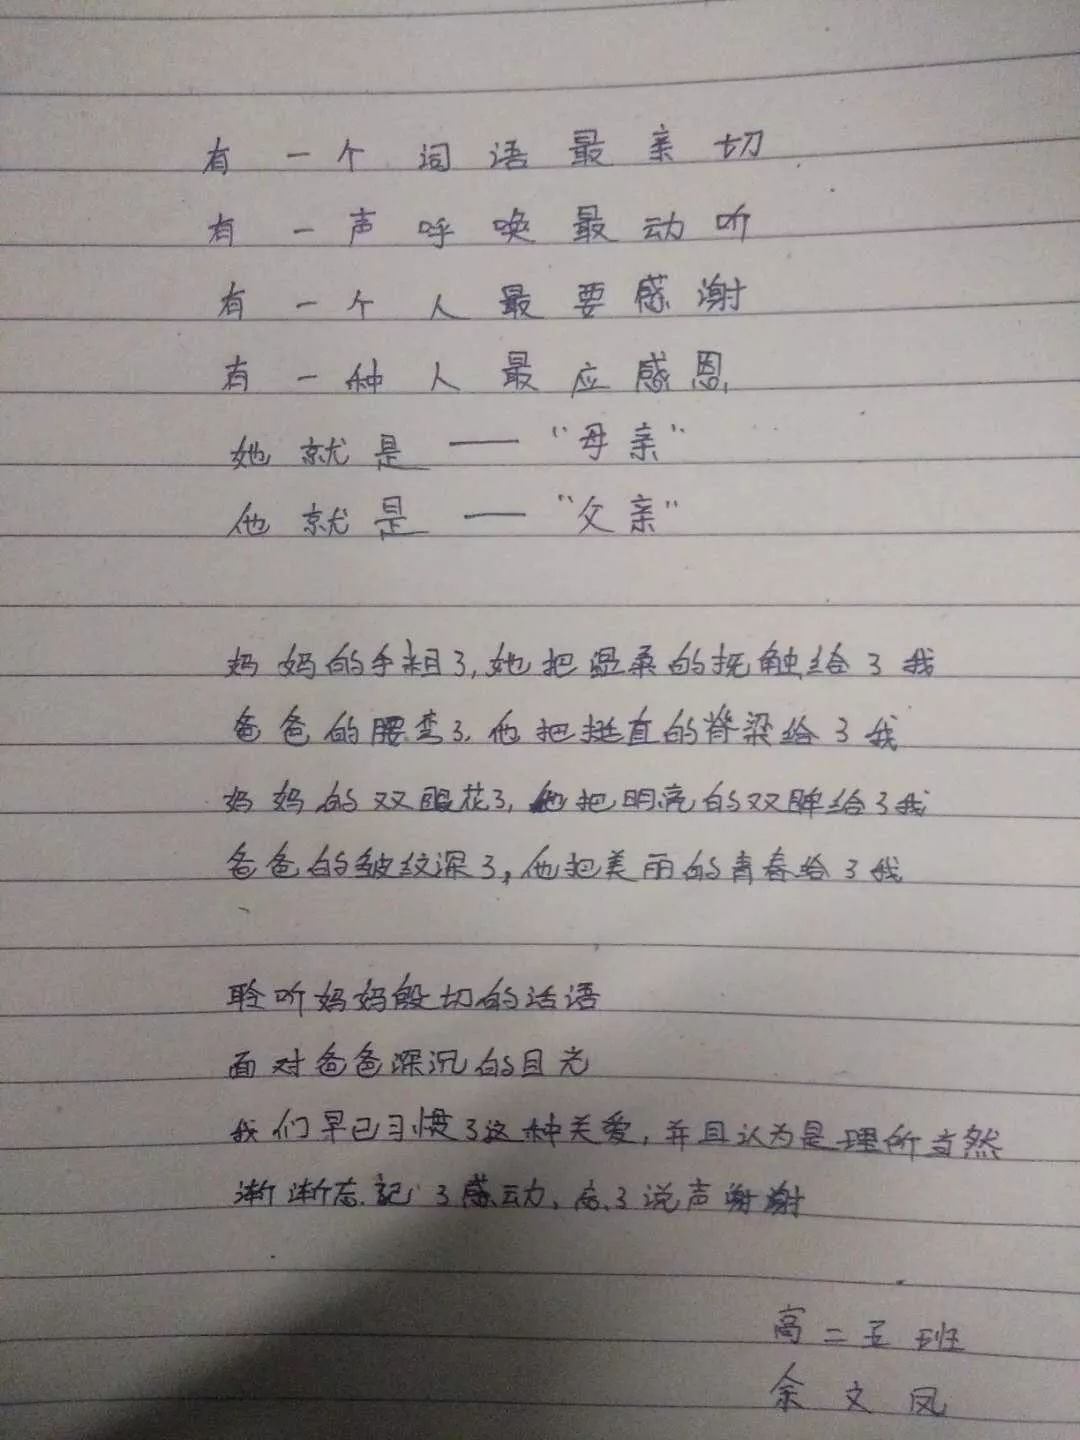 有一个词语最亲切
有一声呼唤最动听
有一个人最要感谢
有一种人最应感恩
她就是——“母亲”
他就是——“父亲”
妈妈的手粗了,她把温柔的抚触给了我
爸爸的腰弯了,他把挺直的脊梁给了我
妈妈的双眼花了,她把明亮的双眸给了我
爸爸的皱纹深了,他把美丽的青春给了我
聆听妈妈殷切的话语
面对爸爸深沉的目光
我们早已习惯了这种关爱,并且认为是理所当然
渐渐忘记了感动,忘了说声谢谢
高二五班
余文凤